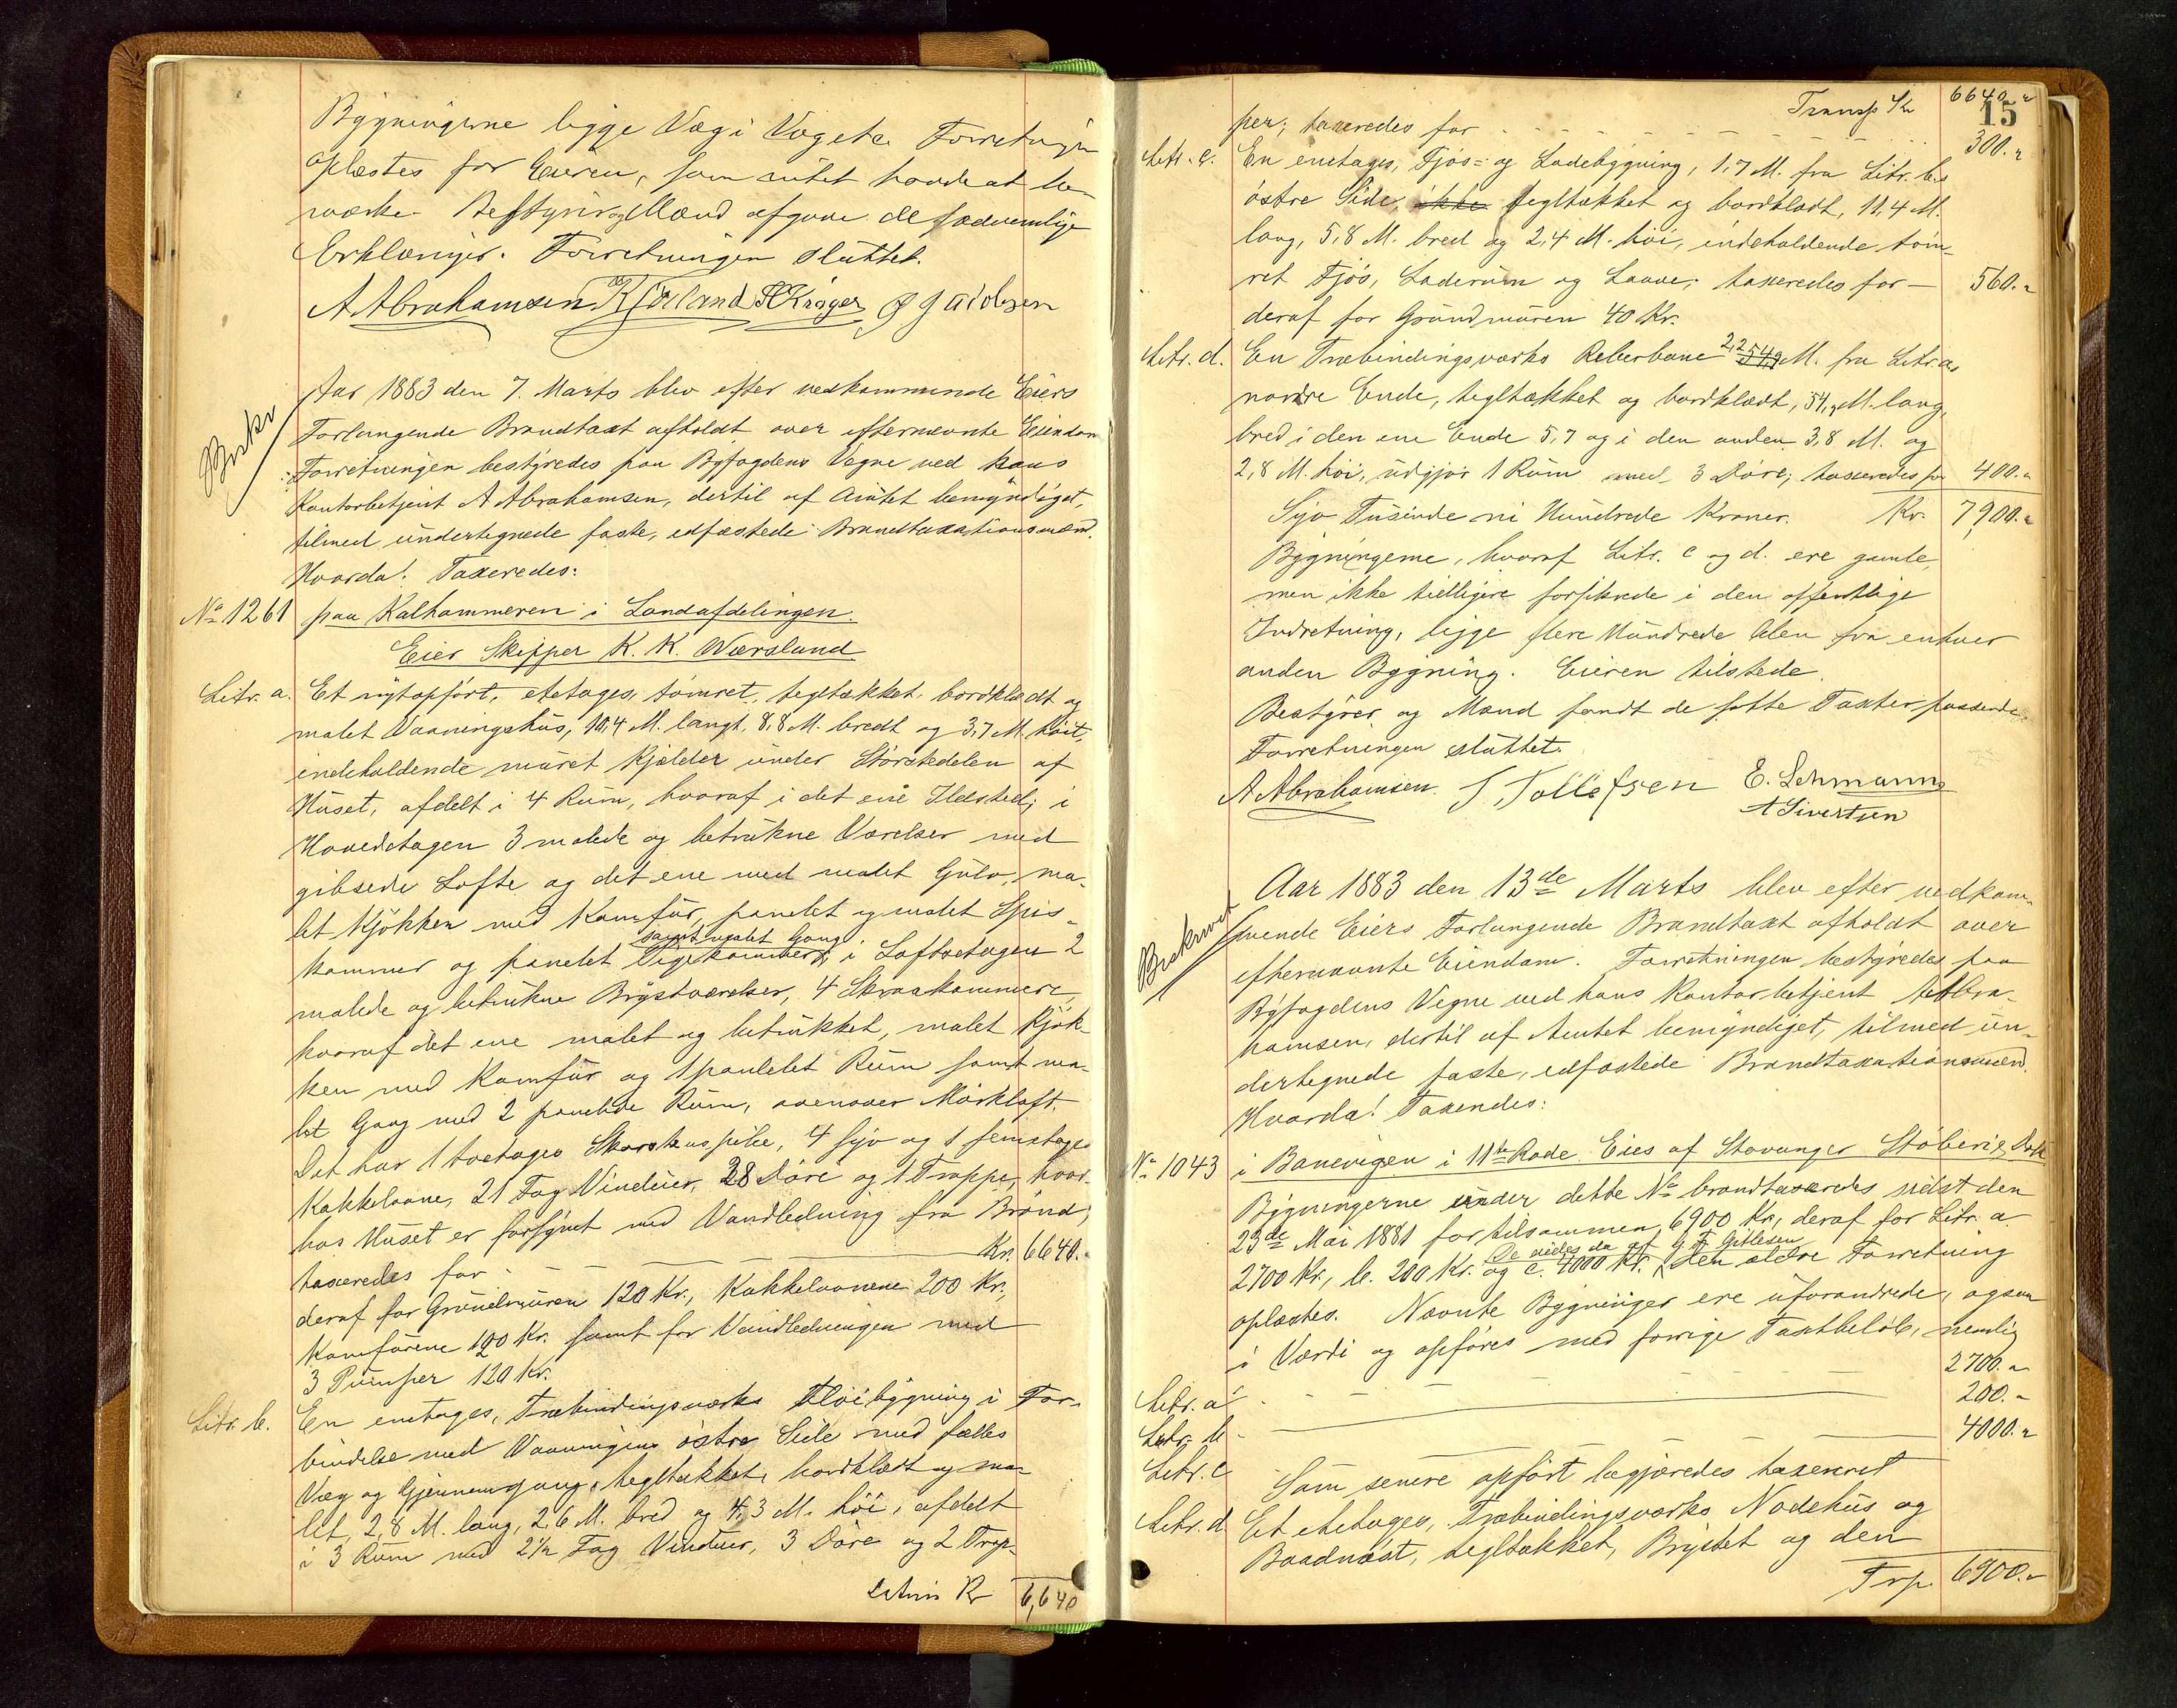 Bygningerne ligge Væg i Væg etc. Forretningen
oplæstes for Eieren, som intet havde at be-
mærke. Bestyrer og Mænd afgave de sædvanlige
Erklæringer. Forretningen sluttet.
A Abrahamsen Kjørland H Krøger J Jacobsen
Aar 1883 den 7. Marts blev efter vedkommende Eiers
Beskr
Forlangende Brandtaxt afholdt over efternævnte Eiendom
Forretningen bestyredes paa Byfogdens Vegne ved hans
Kontorbetjent A Abrahamsen, dertil af Amtet bemyndiget,
tilmed undertegnede faste, edfæstede Brandtaxationsmænd.
Hvorda! Taxeredes:
No 1261 paa Kalhammeren i Landafdelingen.
Eier Skipper K. K. Værsland
Litr. a. Et nytopført, etetages, tømret, tegltækket, bordklædt og
malet Vaaningshus, 10,4 M. langt, 8,8 M. bredt og 3,7 M høit,
indeholdende muret Kjælder under Størstedelen af
Huset, afdelt i 4 Rum, hvoraf i det ene Ildsted; i
Hovedetagen 3 malede og betrukne Værelser med
gibsede Lofte og det ene med malet Gulv, ma-
let Kjøkken med Komfür, panelet og malet Spis-
samt malet Gang
kammer og panelet Pigekammer; i Loftsetagen 2
malede og betrukne Brystværelser, 4 Skraakammere,
hvoraf det ene malet og betrukket, malet Kjøk-
ken med Komfür og 1 panelet Rum samt ma-
let Gang med 2 panelede Rum, ovenover Mørkloft.
Det har 1 toetages Skorstenspibe, 4 syv og 1 femetages
Kakkelovne, 21 Fag Vinduer, 28 Døre og 1 Trappe, hvor-
hos Huset er forsynet med Vandledning fra Brønd;
taxeredes for - - - Kr. 6640.-
deraf for Grundmuren 120 Kr., Kakkelovnene 200 Kr.,
Komfürene 120 Kr. samt for Vandledningen med
3 Pumper 120 Kr.
Litr. b. En enetages, Træbindingsværks Fløibygning i For-
bindelse med Vaaningens østre Side med fælles
Væg og Gjennemgang, tegltækket, bordklædt og ma-
let, 2,8 M. lang, 2,6 M. bred og 4,3 M. høi, afdelt
i 3 Rum med 2½ Fag Vinduer, 3 Døre og 2 Trap-
Kr 6,640
15
Transp Kr 6640.-
per; taxeredes for - - - 300.-
Litr. c. En enetages, Fjøs- og Ladebygning, 1,7 M. fra Litr. b.s
østre Side, ikke tegltækket og bordklædt, 11,4 M.
lang, 5,8 M. bred og 2,4 M. høi, indeholdende tøm-
ret Fjøs, Laderum og Laave; taxeredes for - 560.-
deraf for Grundmuren 40 Kr.
Litr. d. En Træbindingsværks Reberbane 2,2 54,9 M. fra Litr. a.s
nordre Ende, tegltækket og bordklædt, 54,9 M. lang,
bred i den ene Ende 5,7 og i den anden 3,8 M. og
2,8 M. høi, udgjør 1 Rum med 3 Døre; taxeredes for 400.-
Syv Tusinde ni Hundrede Kroner. Kr. 7,900.-
Bygningerne, hvoraf Litr. c og d. ere gamle,
men ikke tidligere forsikrede i den offentlige
Indretning, ligge flere Hundrede Alen fra enhver
anden Bygning. Eieren tilstede.
Bestyrer og Mænd fandt de satte Taxter passende.
Forretningen sluttet.
A Abrahamsen. T. Tollefsen E. Lehmann
A Sivertsen
Aar 1883 den 13de Marts blev efter vedkom-
Beskrevet
mende Eiers Forlangende Brandtaxt afholdt over
efternævnte Eiendom. Forretningen bestyredes paa
Byfogdens Vegne ved hans Kontorbetjent A Abra-
hamsen, dertil af Amtet bemyndiget, tilmed un-
dertegnede faste, edfæstede Brandtaxationsmænd.
Hvorda! Taxeredes:
No 1043 i Banevigen i 11te Rode. Eies af Stavanger Støberi & Dok
Bygningerne under dette No brandtaxeredes sidst den
23de Mai 1881 for tilsammen 6900 Kr., deraf for Litr. a
De eiedes da af G. F. Gitlesen
2700 Kr., b. 200 Kr. og c. 4000 Kr. Den ældre Forretning
oplæstes. Nævnte Bygninger ere uforandrede, ogsaa
i Værdi og opføres med forrige Taxtbeløb, nemlig
Litr. a - - - 2700.-
Litr. b - - - 200.-
Litr. c - - - 4000.-
Som senere opført begjæredes taxeret
Litr. d. Et etetages, Træbindingsværks Nodehus og
Baadnøst, tegltækket, Brystet og den
Trp. 6900.-